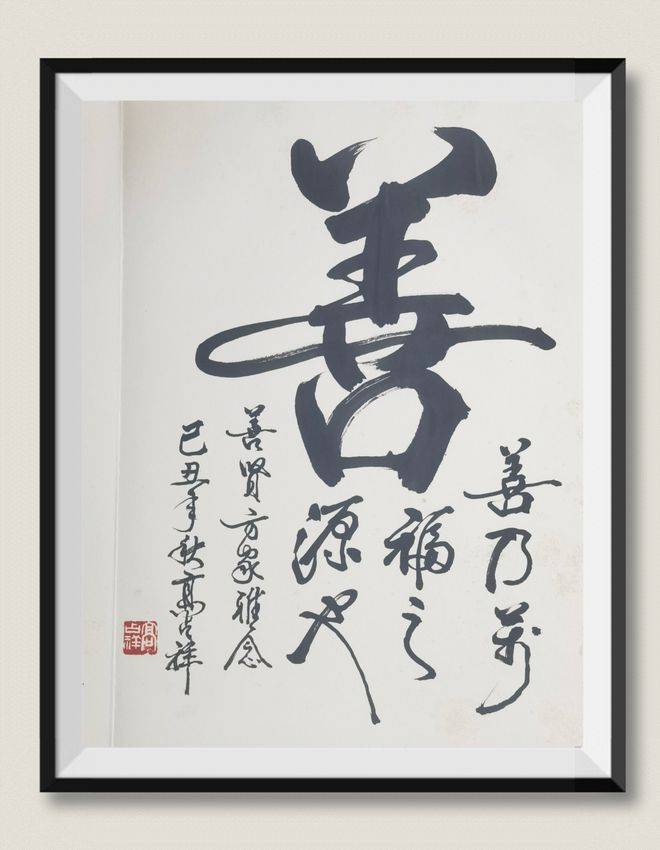 善
善乃万
福之
源也
善贤方家雅念
己丑年秋高占祥
高占祥